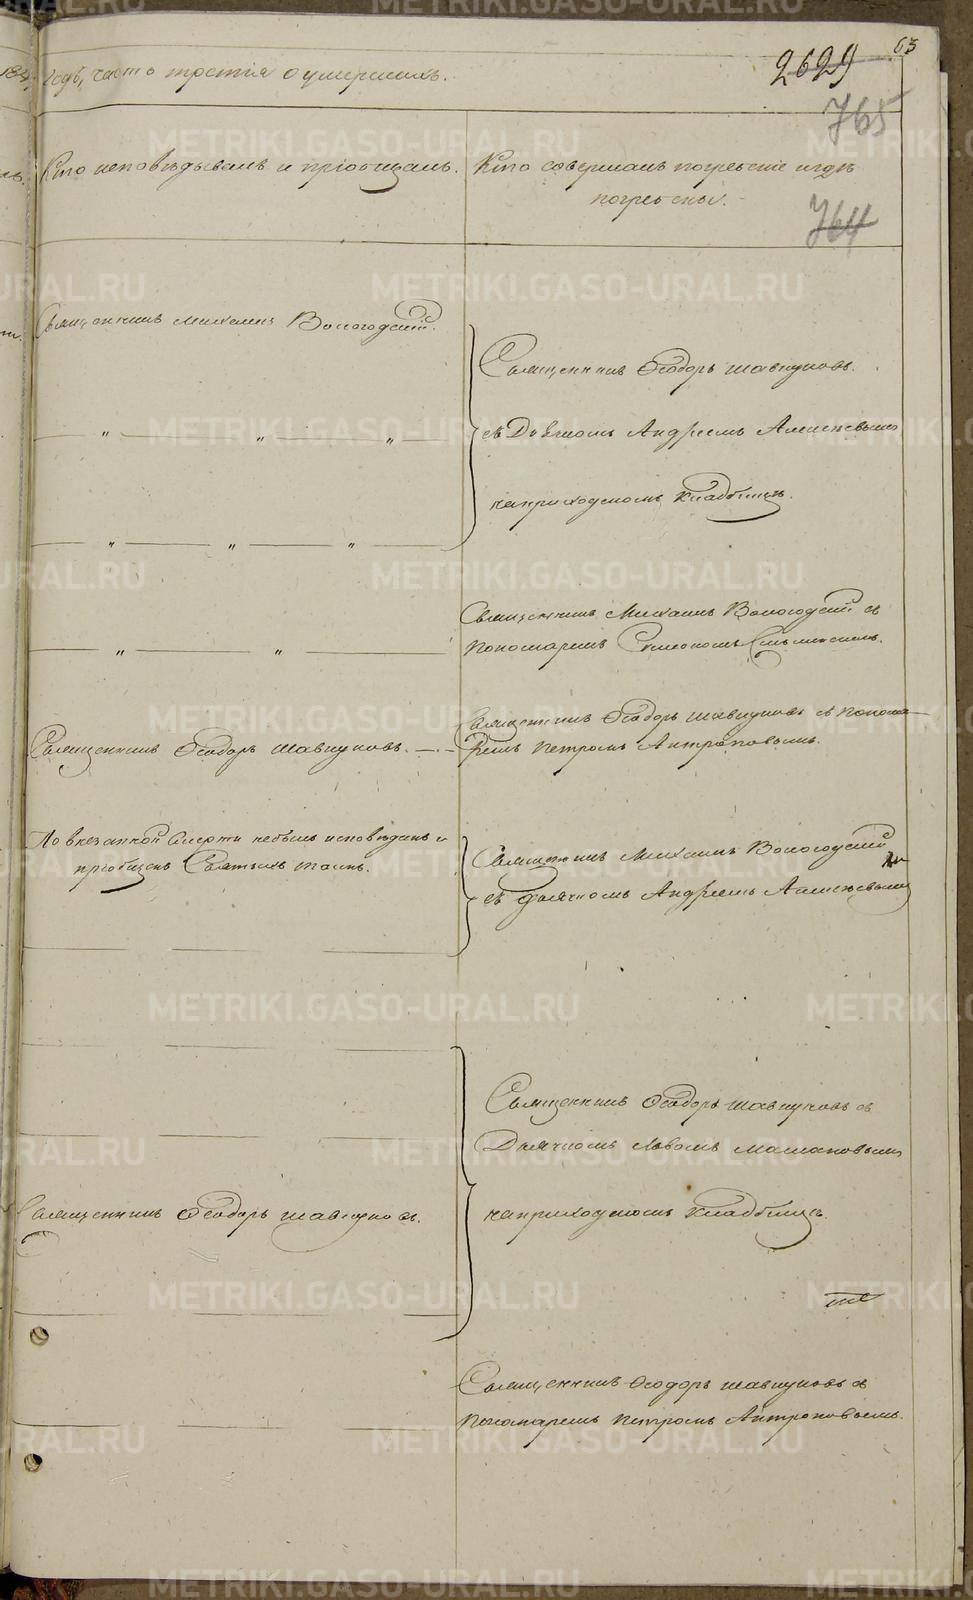 63
2629
184 Годъ, часть третья о умершихъ.
765
Кто исповѣдывалъ и пріобщалъ.
Кто совершалъ погребеніе и гдѣ
погребены.
764
Священникъ Михаилъ Вологодскій.
Священникъ Ѳеодоръ Шавкуновъ
съ Дьячкомъ Андреемъ Алексѣевымъ
на приходскомъ кладбищѣ.
Священникъ Михаилъ Вологодскій съ
Пономаремъ Симеономъ
Священникъ Ѳеодоръ Шавкуновъ съ Понома-
Священникъ Ѳеодоръ Шавкуновъ.
ремъ Петромъ Антроповымъ.
По внезапной смерти небылъ исповѣданъ и
пріобщенъ Святыхъ Таинъ.
Священникъ Михаилъ Вологодскій
съ Дьячкомъ Андреемъ Алексѣевымъ
Священникъ Ѳеодоръ Шавкуновъ съ
Дьячкомъ Львомъ
Священникъ Ѳеодоръ Шавкуновъ.
на приходскомъ кладбищѣ.
Священникъ Ѳеодоръ Шавкуновъ съ
Пономаремъ Петромъ Антроповымъ.
METRIKI.GASO-URAL.RU